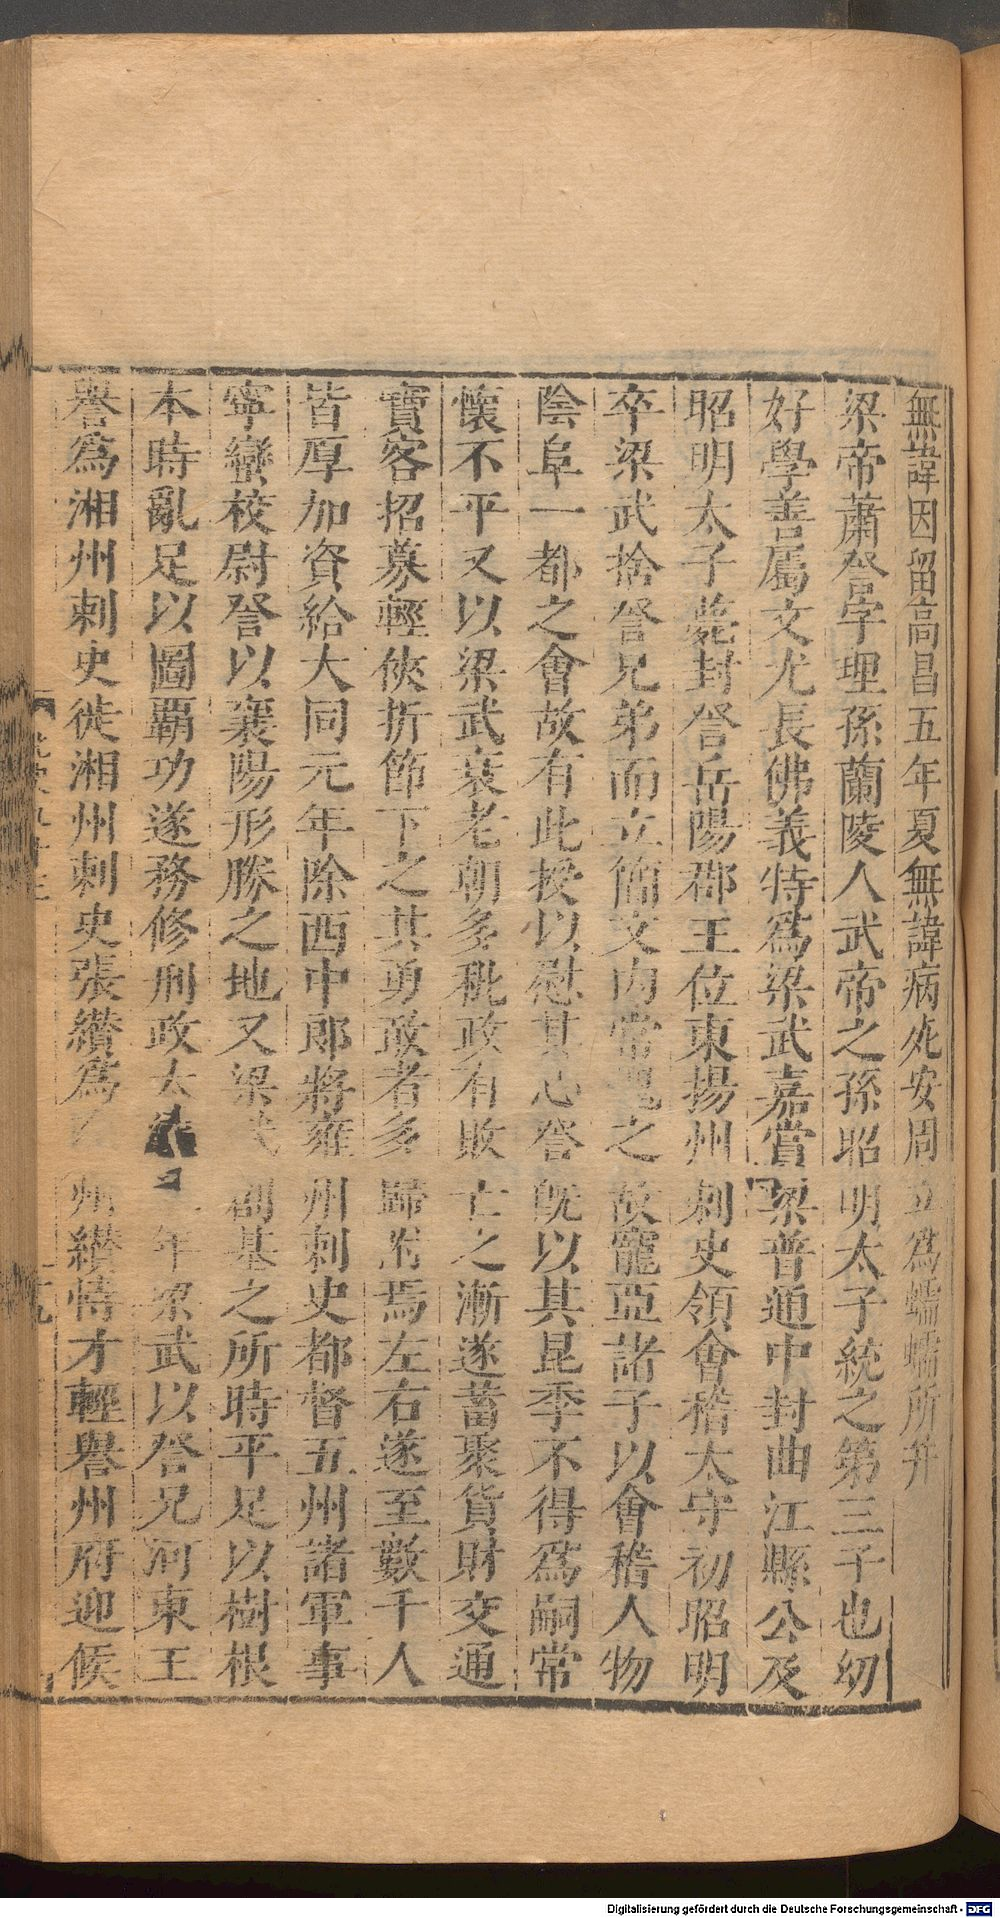 無諱因留高昌五年夏無諱病死安周立爲蠕蠕所并
梁帝蕭詧字理孫蘭陵人武帝之孫昭明太子統之第三子也幼
好學善屬文尤長佛義特爲梁武嘉賞梁普通中封曲江縣公及
昭明太子薨封詧岳陽郡王位東揚州刺史領會稽太守初昭明
卒梁武捨詧兄弟而立簡文内常愧之故寵亞諸子以會稽人物
陰阜一都之會故有此授以慰其心詧既以其昆季不得爲嗣常
懷不平又以梁武衰老朝多秕政有敗亡之漸遂蓄聚貨財交通
賓客招募輕俠折節下之其勇敢者多歸附焉左右遂至數千人
皆厚加資給大同元年除西中郎將雍州刺史都督五州諸軍事
寧蠻校尉詧以襄陽形勝之地又梁武創基之所時平足以樹根
本時亂足以圖覇功遂務修刑政太年梁武以詧兄河東王
譽爲湘州刺史徙湘州刺史張纘爲州纘恃才輕譽州府迎候
Digitalisierung gefördert durch die Deutsche Forschungsgemeinschaft - DFG